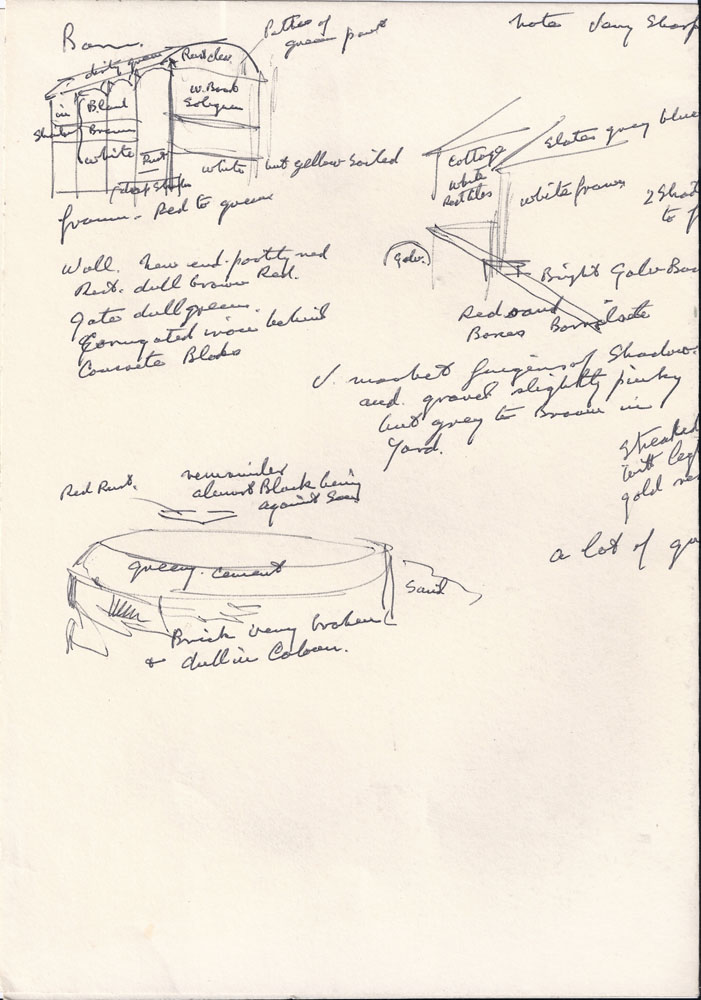 Barn.
Patches of
green paint
dirty green
Red
in
Shadow
Black
Brown
White
Rust
W. Boat
white but yellow soiled
deep Shadow
frame - Red to green
Wall. new end. partly red
Rest. dull brown Red.
Gate dull green.
Corrugated iron behind
Concrete Blocks
note Very Sharp
Slates grey blue
Cottage
White
Red tiles
white frames
2 Shad
to
Galv.
Bright Galv Bar
Red and
Boxes
V. marked fingers of Shadow.
and gravel slightly pinky
but grey to Brown in
Yard.
Streaked
with
gold
a lot of
Red Rust.
remainder
almost Black being
against Sea
greeny. cement
Sand
Brick very broken
+ dull in Colour.